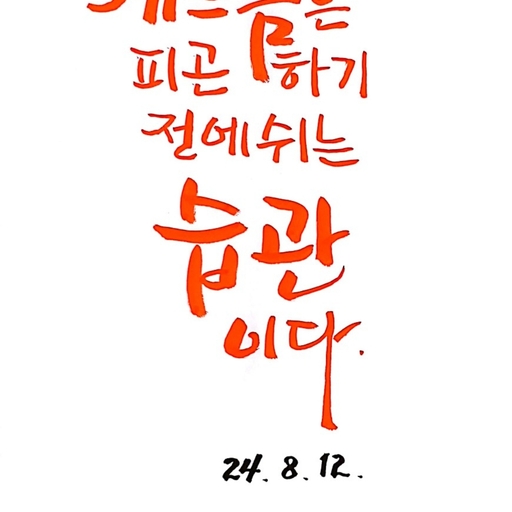 게으름은
피곤하기
전에 쉬는
습관
이다.
24. 8. 12.